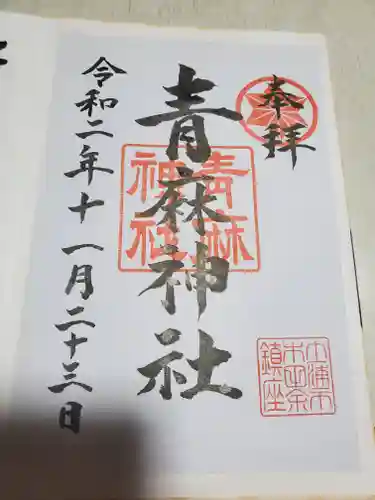 奉拝
青麻神社
令和二年十一月二十三日
青麻
神社
鎮座